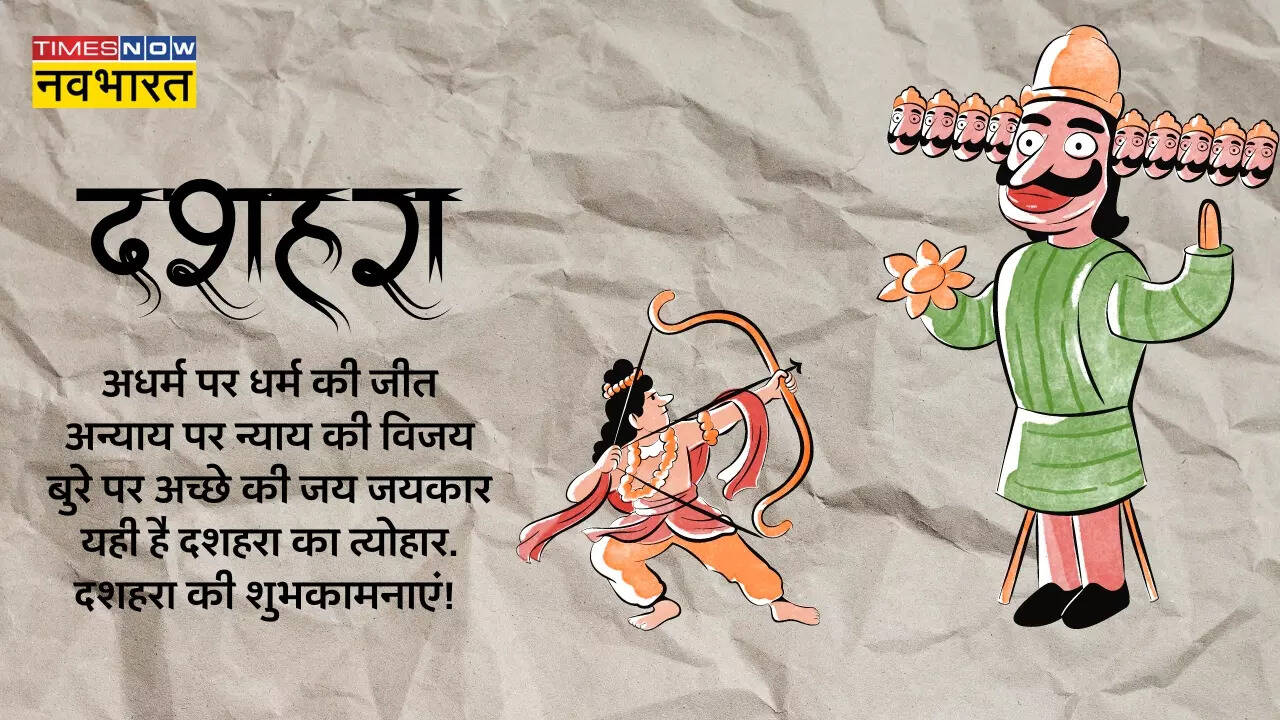 TIMES NOW
नवभारत
दशहरा
अधर्म पर धर्म की जीत
अन्याय पर न्याय की विजय
बुरे पर अच्छे की जय जयकार
यही है दशहरा का त्योहार.
दशहरा की शुभकामनाएं!